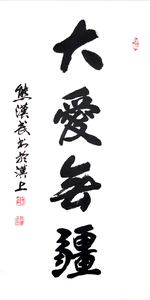 大愛無疆
熊漢武書於漢上